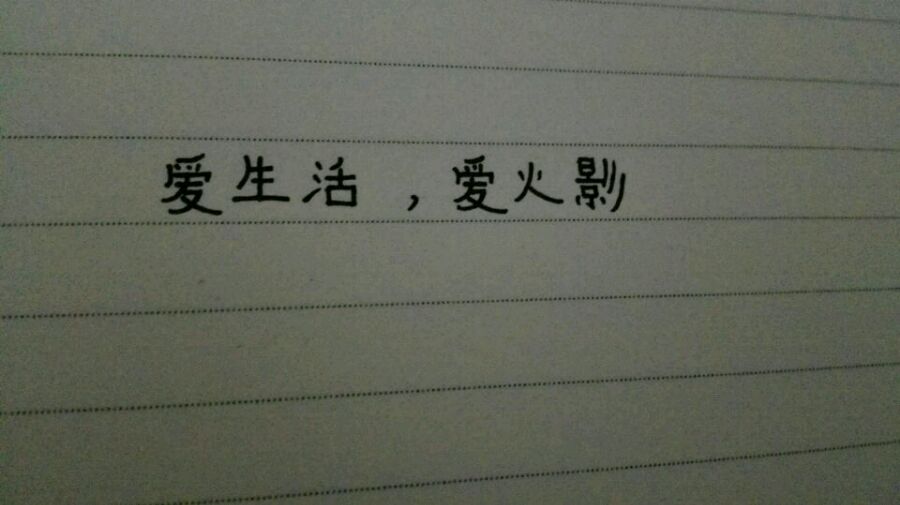 爱生活，爱火影